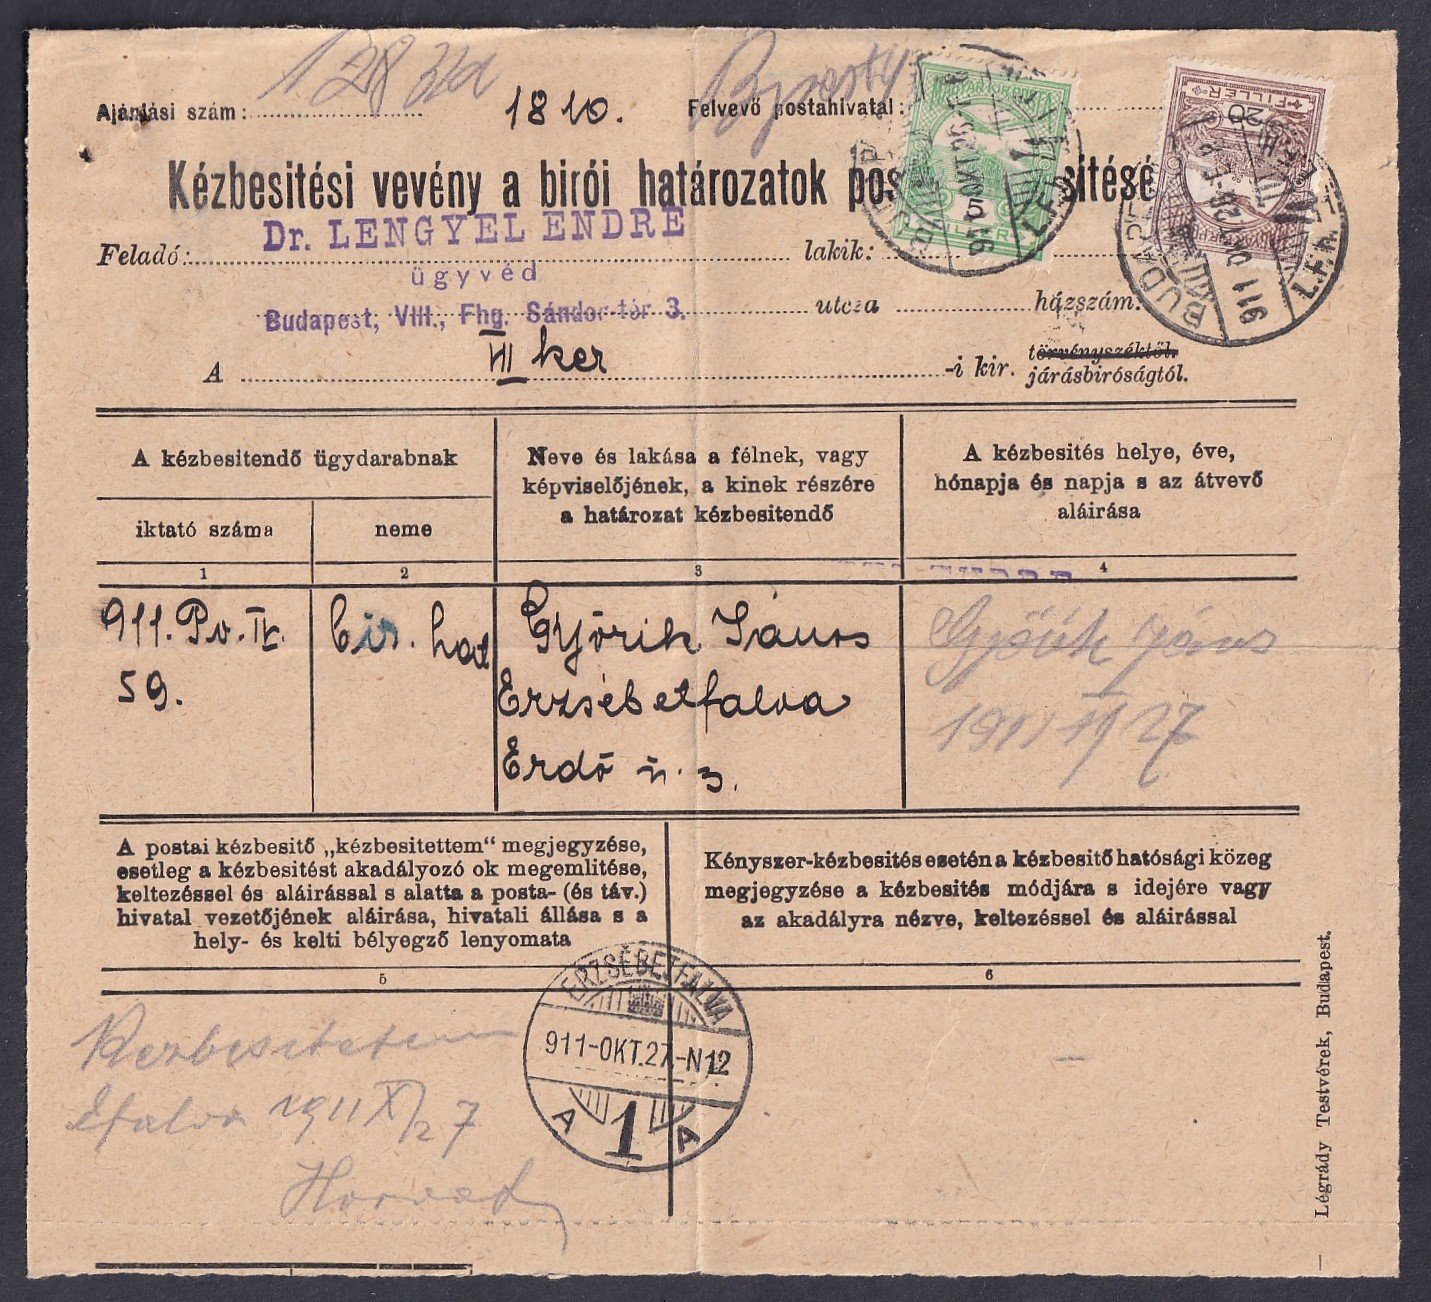 Ajánlási szám:
1810.
Felvevő postahivatal:
Kézbesitési vevény a birói határozatok pos sitésé
Dr. LENGYEL ENDRE
Feladó: lakik:
ügyvéd
Budapest, VIII., Fhg. Sándor-tér 3. utcza házszám.
VII ker
törvényszéktől.
A -i kir. járásbiróságtól.
FILLÉR
FILLÉR
20
BUDAPEST
911 OKT 26
BUDAPEST
911 OKT 26
A kézbesitendő ügydarabnak
iktató száma
neme
Neve és lakása a félnek, vagy
képviselőjének, a kinek részére
a határozat kézbesitendő
A kézbesités helye, éve,
hónapja és napja s az átvevő
aláirása
1 2 3 4
911. Pv. IV.
59.
bir. hat
Györik János
Erzsébetfalva
Erdő u. 3.
Győrik János
1911 27
A postai kézbesitő „kézbesitettem“ megjegyzése,
esetleg a kézbesitést akadályozó ok megemlitése,
keltezéssel és aláirással s alatta a posta- (és táv.)
hivatal vezetőjének aláirása, hivatali állása s a
hely- és kelti bélyegző lenyomata
Kényszer-kézbesités esetén a kézbesitő hatósági közeg
megjegyzése a kézbesités módjára s idejére vagy
az akadályra nézve, keltezéssel és aláirással
5 6
Kezbesitetem
Efalva 1911 X/27
ERZSÉBETFALVA
911-OKT.27.-N12
A 1 A
Légrády Testvérek, Budapest.